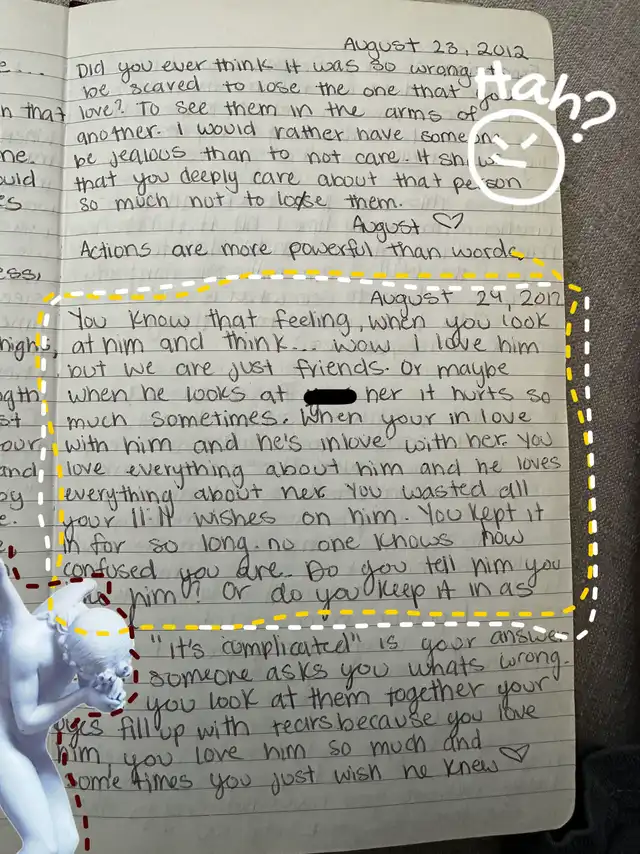 e...
n that
ne.
ould
es
ess,
nigh
gth
st
our
and
by
e.
August 23, 2012
Did you ever think it was so wrong
be scared to lose the one that you
love? To see them in the arms of
another. I would rather have someone
be jealous than to not care. It shows
that you deeply care about that person
so much not to lose them.
August ♡
Actions are more powerful than words
Hah?
August 24, 2012
You know that feeling, when you look
at him and think... wow I love him
but we are just friends. Or maybe
when he looks at her it hurts so
much sometimes. When your in love
with him and he's inlove with her. You
love everything about him and he loves
everything about her. You wasted all
your 11:11 wishes on him. You kept it
in for so long. no one knows how
confused you are. Do you tell him you
him? Or do you keep it in as
"It's complicated" is your answer
someone asks you whats wrong.
you look at them together your
eyes fill up with tears because you love
him, you love him so much and
some times you just wish he knew ♡